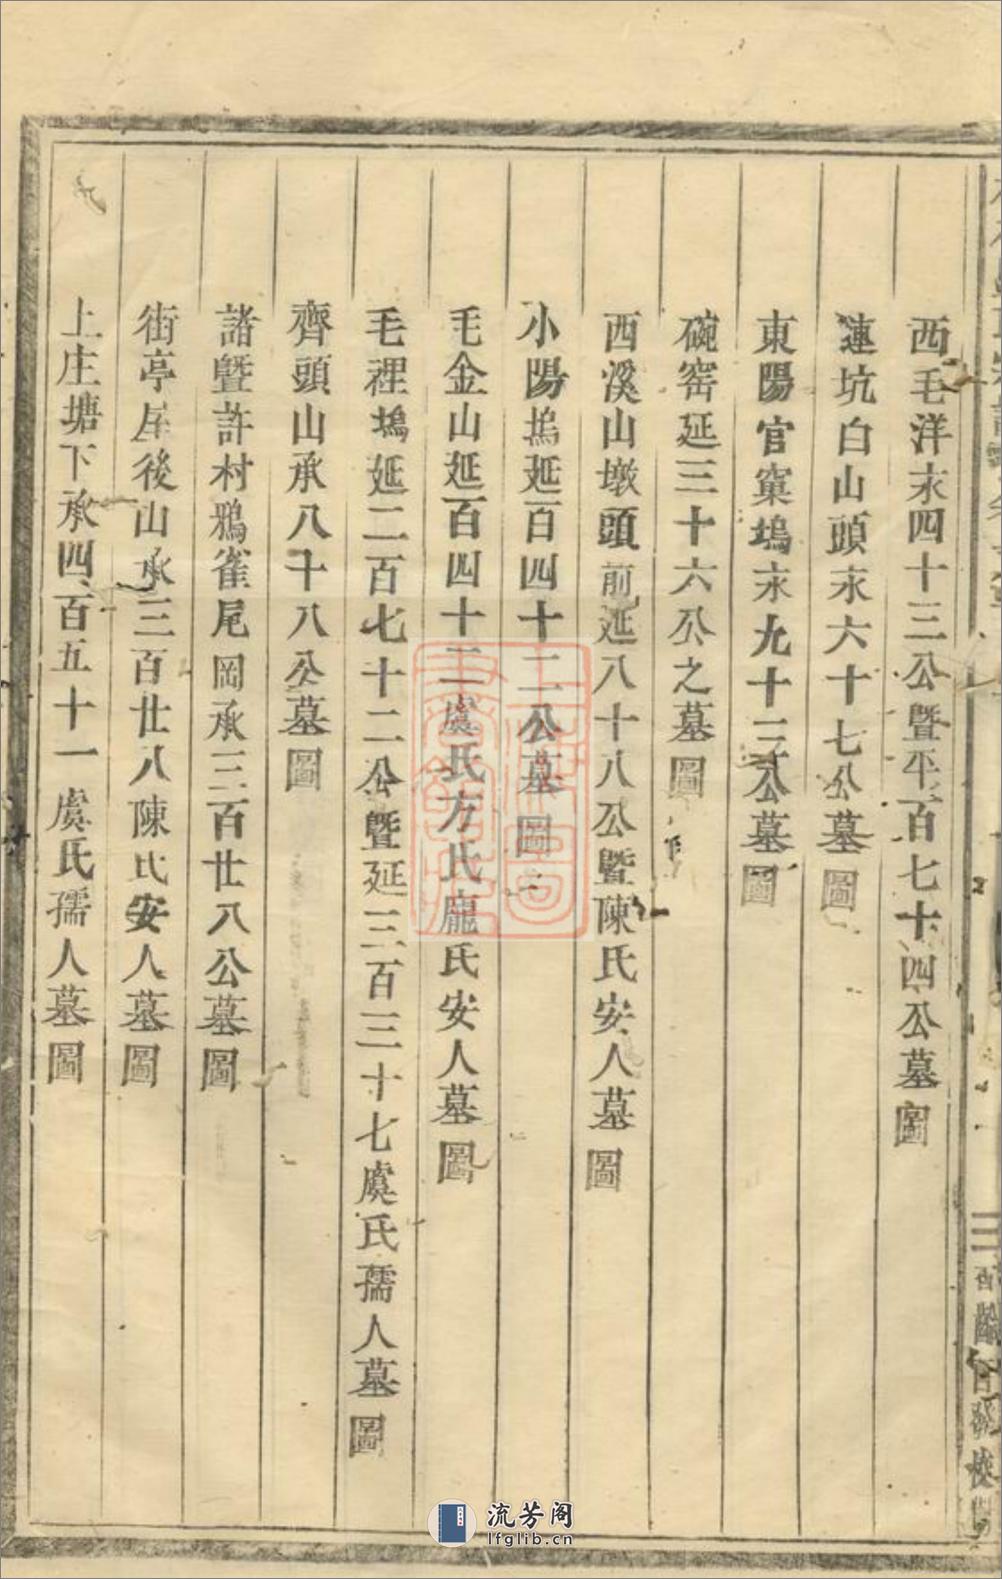 西毛洋永四十三公暨平百七十四公墓圖
蓮坑白山頭永六十七公墓圖
東陽官窠塢永九十三公墓圖
碗窑延三十六公之墓圖
西溪山墩頭前延八十八公暨陳氏安人墓圖
小陽塢延百四十二公墓圖
毛金山延百四十三虞氏方氏龐氏安人墓圖
毛裡塢延二百七十二公暨延三百三十七虞氏孺人墓圖
齊頭山承八十八公墓圖
諸暨許村鴉雀尾岡承三百廿八公墓圖
街亭屋後山承三百廿八陳氏安人墓圖
上庄塘下承四百五十一虞氏孺人墓圖
流芳阁
lfglib.cn